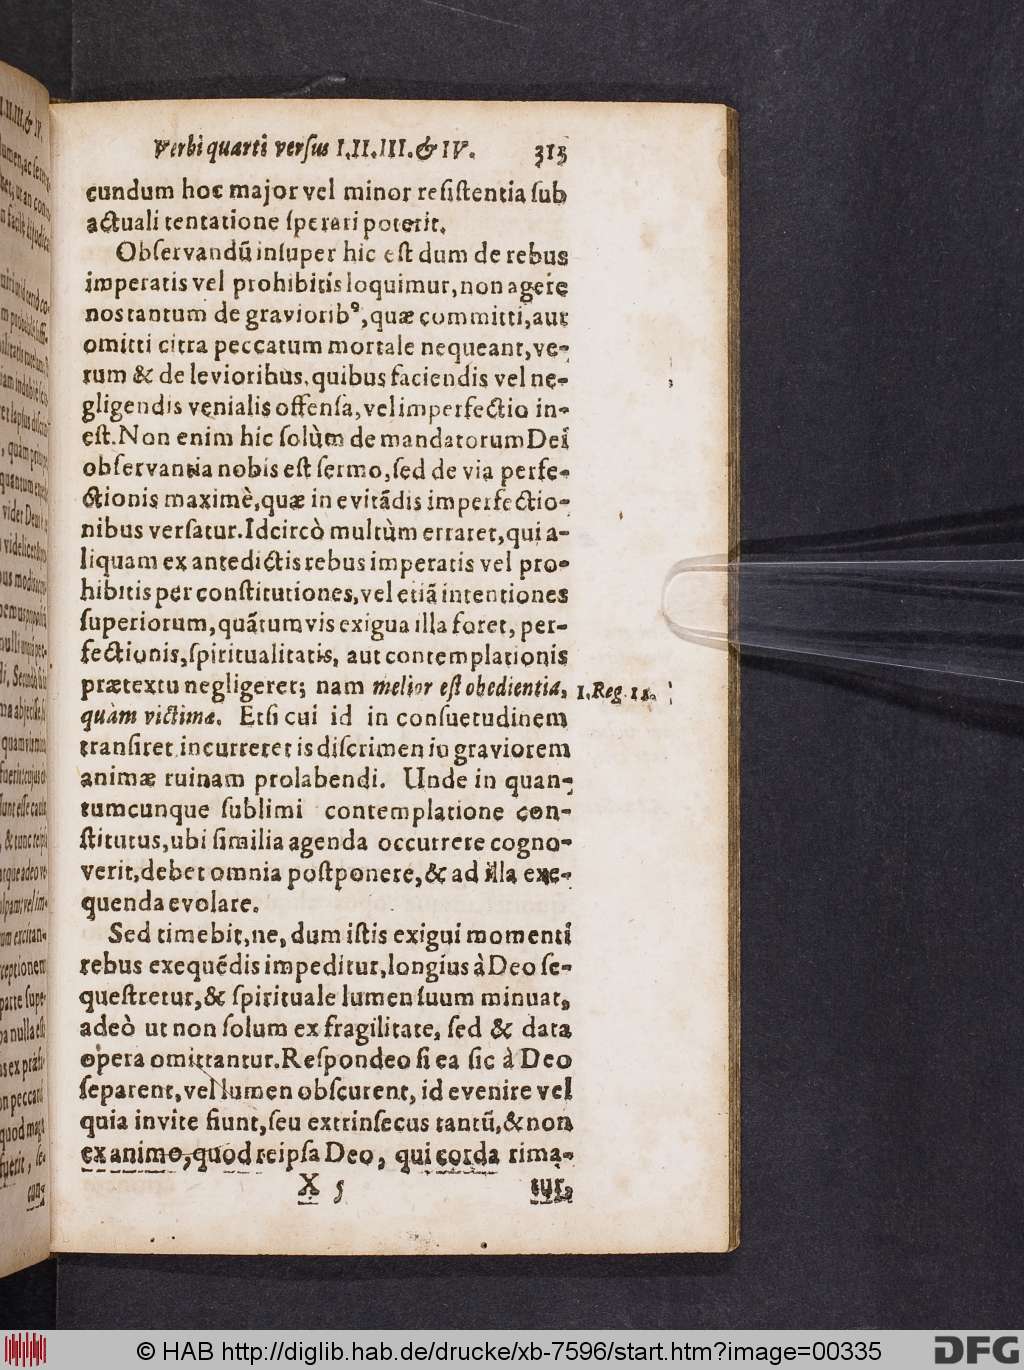 Verbi quarti versus I.II.III.& IV. 313
cundum hoc major vel minor resistentia sub
actuali tentatione sperari poterit.
Observandū insuper hic est dum de rebus
imperatis vel prohibitis loquimur, non agere
nos tantum de graviorib⁹, quæ committi, aut
omitti citra peccatum mortale nequeant, ve-
rum & de levioribus, quibus faciendis vel ne-
gligendis venialis offensa, vel imperfectio in-
est. Non enim hic solùm de mandatorum Dei
observantia nobis est sermo, sed de via perfe-
ctionis maximè, quæ in evitādis imperfectio-
nibus versatur. Idcircò multùm erraret, qui a-
liquam ex antedictis rebus imperatis vel pro-
hibitis per constitutiones, vel etiā intentiones
superiorum, quātumvis exigua illa foret, per-
fectionis, spiritualitatis, aut contemplationis
prætextu negligeret; nam melior est obedientia, I. Reg. 15.
quàm victima. Etsi cui id in consuetudinem
transiret incurreret is discrimen in graviorem
animæ ruinam prolabendi. Unde in quan-
tumcunque sublimi contemplatione con-
stitutus, ubi similia agenda occurrere cogno-
verit, debet omnia postponere, & ad illa exe-
quenda evolare.
Sed timebit, ne, dum istis exigui momenti
rebus exequēdis impeditur, longius à Deo se-
questretur, & spirituale lumen suum minuat,
adeò ut non solum ex fragilitate, sed & data
opera omittantur. Respondeo si ea sic à Deo
separent, vel lumen obscurent, id evenire vel
quia invite fiunt, seu extrinsecus tantū, & non
ex animo, quod reipsa Deo, qui corda rima-
X 5 tur,
© HAB http://diglib.hab.de/drucke/xb-7596/start.htm?image=00335
DFG